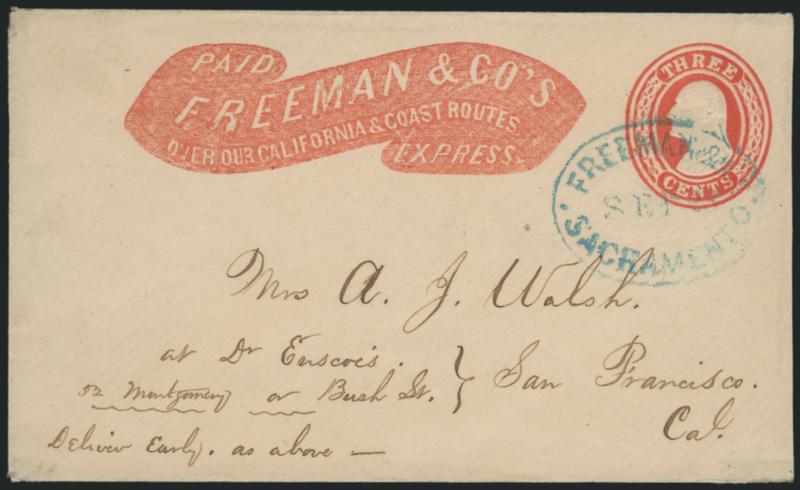 PAID
FREEMAN & CO'S
OVER OUR CALIFORNIA & COAST ROUTES
EXPRESS.
THREE
CENTS
FREEMAN &
SEP
SACRAMENTO
Mrs A. J. Walsh.
at Dr
San Francisco.
52 Montgomery or Bush St.
Cal.
Deliver Early. as above —